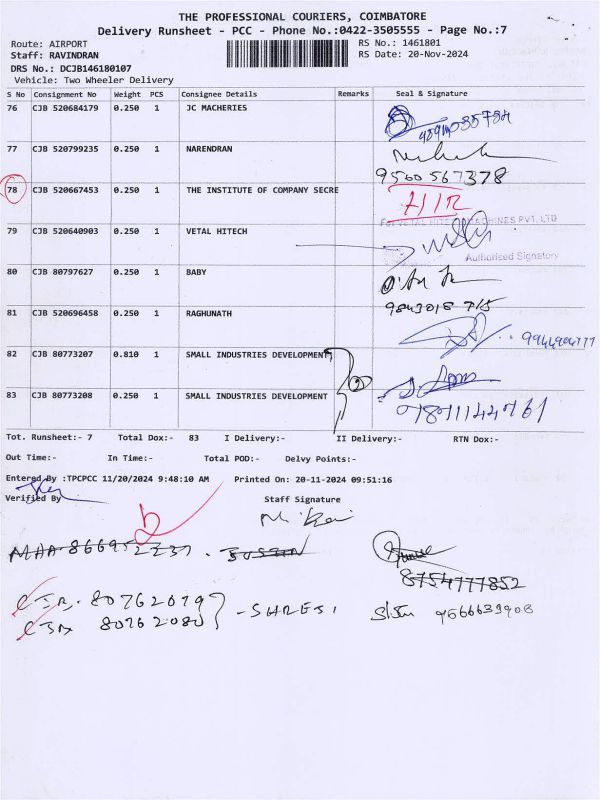 THE PROFESSIONAL COURIERS, COIMBATORE
Delivery Runsheet - PCC - Phone No.:0422-3505555 - Page No.:7
Route: AIRPORT RS No.: 1461801
Staff: RAVINDRAN RS Date: 20-Nov-2024
DRS No.: DCJB146180107
Vehicle: Two Wheeler Delivery
S No Consignment No Weight PCS Consignee Details Remarks Seal & Signature
76 CJB 520684179 0.250 1 JC MACHERIES
77 CJB 520799235 0.250 1 NARENDRAN
9560567378
78 CJB 520667453 0.250 1 THE INSTITUTE OF COMPANY SECRE
For VETAL HITECH MACHINES PVT. LTD
79 CJB 520640903 0.250 1 VETAL HITECH
Authorised Signatory
80 CJB 80797627 0.250 1 BABY
9843018 715
81 CJB 520696458 0.250 1 RAGHUNATH
9944904777
82 CJB 80773207 0.810 1 SMALL INDUSTRIES DEVELOPMENT
2
83 CJB 80773208 0.250 1 SMALL INDUSTRIES DEVELOPMENT
Tot. Runsheet:- 7 Total Dox:- 83 I Delivery:- II Delivery:- RTN Dox:-
Out Time:- In Time:- Total POD:- Delvy Points:-
Entered By :TPCPCC 11/20/2024 9:48:10 AM Printed On: 20-11-2024 09:51:16
Verified By Staff Signature
8754777852
CJB. 80762079
CJB 80762080 - SHRESI
9566633908